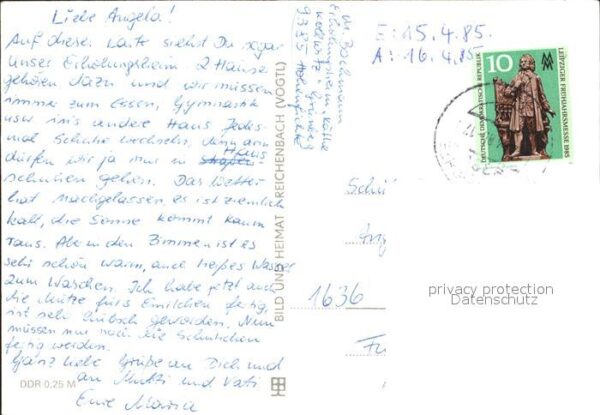 Liebe Angela!
Auf dieser Karte siehst Du sogar
unser Erholungsheim. 2 Häuser
gehören dazu und wir müssen
immer zum Essen, Gymnastik
usw ins andere Haus. Jedes-
mal Schuhe wechseln, denn drin
dürfen wir ja nur in Haus
schuhen gehen. Das Wetter
hat nachgelassen, es ist ziemlich
kalt, die Sonne kommt kaum
raus. Aber in den Zimmern ist es
sehr schön warm, auch heißes Wasser
zum Waschen. Ich habe jetzt auch
die Mütze fürs Emilchen fertig,
ist sehr hübsch geworden. Nun
müssen nur noch die Schühchen
fertig werden.
Ganz liebe Grüße an Dich und
an Mutti und Vati
Eure Maria
DDR 0,25 M
BILD UND HEIMAT REICHENBACH (VOGTL)
M. Bochmann
Erholungsheim Käthe
Kollwitz
9385 Hohenfichte
E: 15.4.85.
A: 16.4.85
10
LEIPZIGER FRÜHJAHRSMESSE 1985
DEUTSCHE DEMOKRATISCHE REPUBLIK
1636
privacy protection
Datenschutz